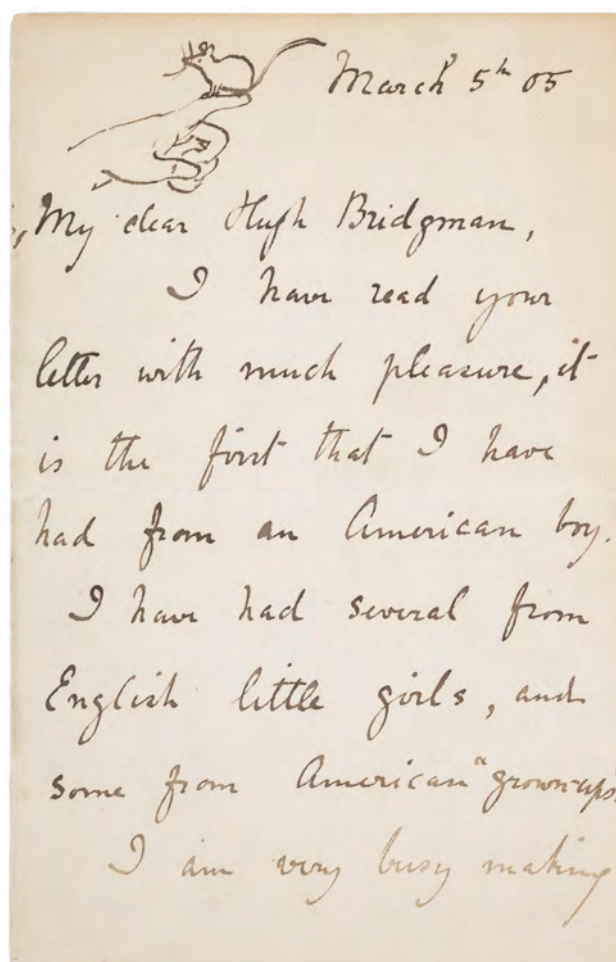 March 5th 05
My dear Hugh Bridgman,
I have read your
letter with much pleasure, it
is the first that I have
had from an American boy.
I have had several from
English little girls, and
some from American "grown-ups"
I am very busy making